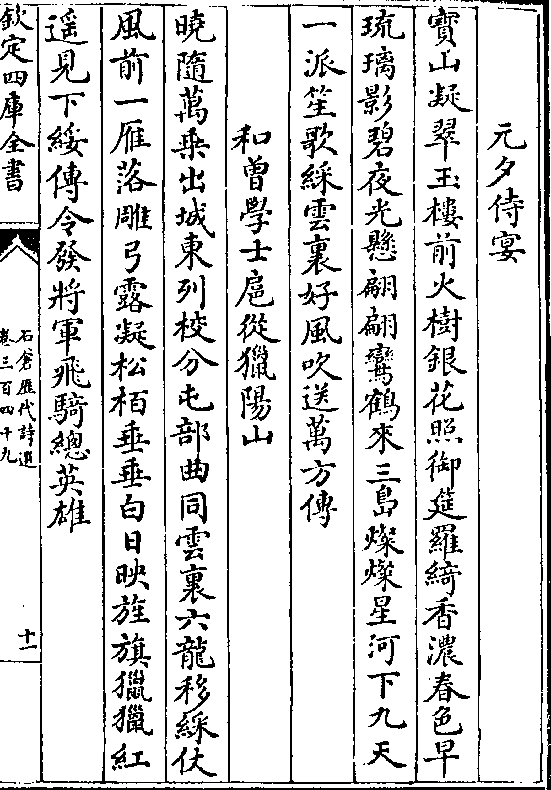 元夕侍宴
寶山凝翠玉樓前火樹銀花照御筵羅綺香濃春色早
琉璃影碧夜光懸翩翩鸞鶴來三島燦燦星河下九天
一派笙歌綵雲裏好風吹送萬方傳
和曾學士扈從獵陽山
曉隨萬乗出城東列校分屯部曲同雲裏六龍移綵仗
風前一雁落雕弓露凝松栢垂垂白日映旌旗獵獵紅
遥見下綏傳令發將軍飛騎總英雄
欽定四庫全書
石倉歷代詩選
卷三百四十九
十一